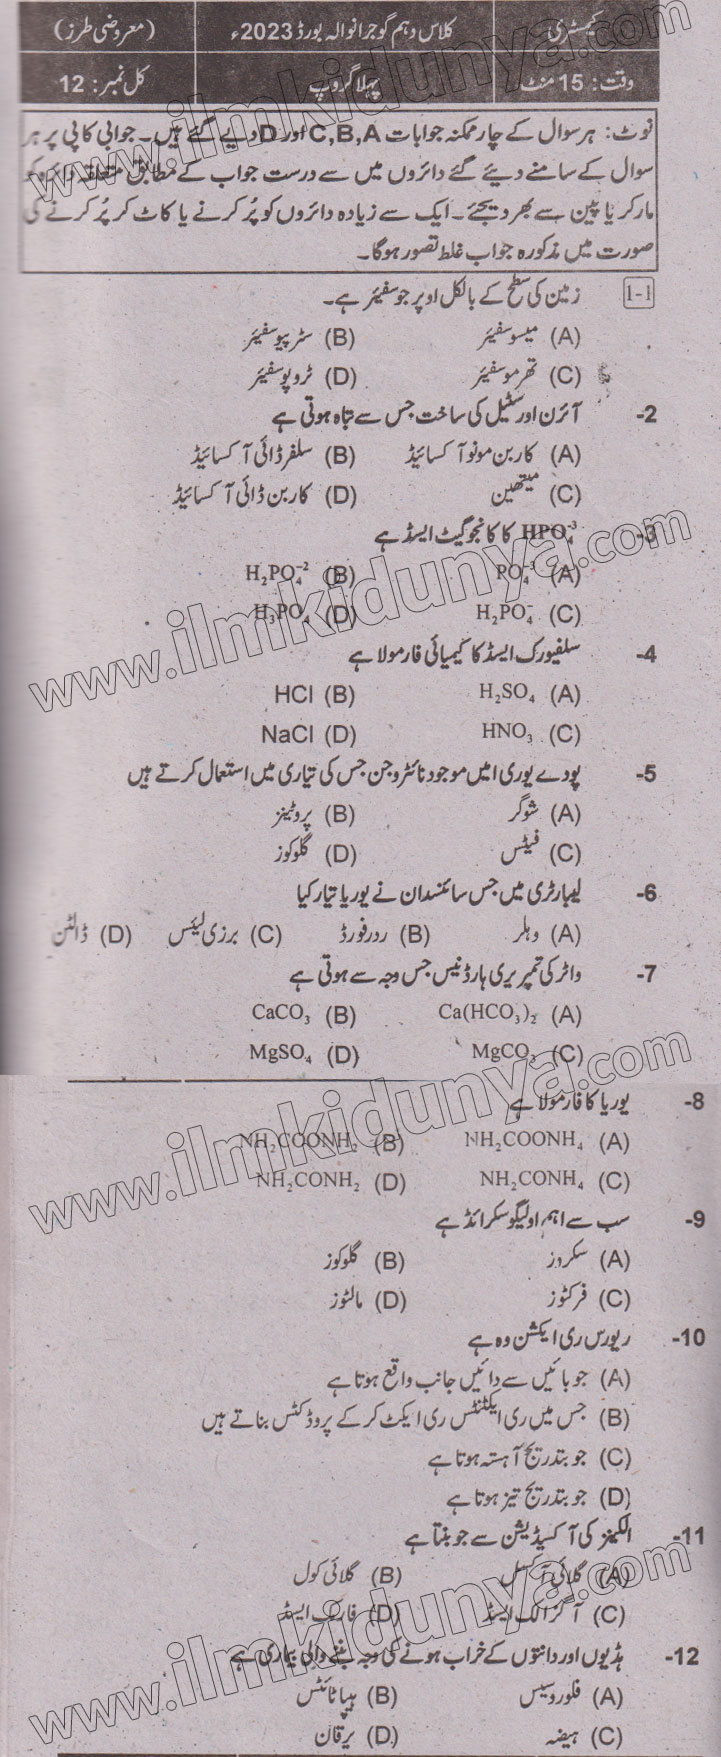 کیمسٹری کلاس دہم گوجرانوالہ بورڈ 2023ء (معروضی طرز)
وقت: 15 منٹ پہلا گروپ کل نمبر: 12
نوٹ: ہر سوال کے چار ممکنہ جوابات C,B,A اور D دیے گئے ہیں۔ جوابی کاپی پر ہر
سوال کے سامنے دیئے گئے دائروں میں سے درست جواب کے مطابق متعلقہ دائرہ کو
مارکر یا پین سے بھر دیجئے۔ ایک سے زیادہ دائروں کو پُر کرنے یا کاٹ کر پُر کرنے کی
صورت میں مذکورہ جواب غلط تصور ہوگا۔
1-1 زمین کی سطح کے بالکل اوپر جو سفیئر ہے۔
(A) میسوسفیئر (B) سٹریپوسفیئر
(C) تھرموسفیئر (D) ٹروپوسفیئر
2- آئرن اور سٹیل کی ساخت جس سے تباہ ہوتی ہے
(A) کاربن مونو آکسائیڈ (B) سلفر ڈائی آکسائیڈ
(C) میتھین (D) کاربن ڈائی آکسائیڈ
3- HPO₄⁻³ کا کانجوگیٹ ایسڈ ہے
(A) PO₄⁻³ (B) H₂PO₄⁻²
(C) H₂PO₄⁻ (D) H₃PO₄
4- سلفیورک ایسڈ کا کیمیائی فارمولا ہے
(A) H₂SO₄ (B) HCl
(C) HNO₃ (D) NaCl
5- پودے یوریا میں موجود نائٹروجن جس کی تیاری میں استعمال کرتے ہیں
(A) شوگر (B) پروٹینز
(C) فیٹس (D) گلوکوز
6- لیبارٹری میں جس سائنسدان نے یوریا تیار کیا
(A) وہلر (B) ردرفورڈ (C) برزی لیئس (D) ڈالٹن
7- واٹر کی ٹمپریری ہارڈنیس جس وجہ سے ہوتی ہے
(A) Ca(HCO₃)₂ (B) CaCO₃
(C) MgCO₃ (D) MgSO₄
8- یوریا کا فارمولا ہے
(A) NH₂COONH₄ (B) NH₂COONH₂
(C) NH₂CONH₄ (D) NH₂CONH₂
9- سب سے اہم اولیگوسکرائڈ ہے
(A) سکروز (B) گلوکوز
(C) فرکٹوز (D) مالٹوز
10- ریورس ری ایکشن وہ ہے
(A) جو بائیں سے دائیں جانب واقع ہوتا ہے
(B) جس میں ری ایکٹنٹس ری ایکٹ کر کے پروڈکٹس بناتے ہیں
(C) جو بتدریج آہستہ ہوتا ہے
(D) جو بتدریج تیز ہوتا ہے
11- الکینز کی آکسیڈیشن سے جو بنتا ہے
(A) گلائی آکسل (B) گلائی کول
(C) آگزالک ایسڈ (D) فارمک ایسڈ
12- ہڈیوں اور دانتوں کے خراب ہونے کی وجہ بننے والی بیماری ہے
(A) فلوروسیس (B) ہیپاٹائٹس
(C) ہیضہ (D) یرقان
www.ilmkidunya.com
www.ilmkidunya.com
www.ilmkidunya.com
www.ilmkidunya.com